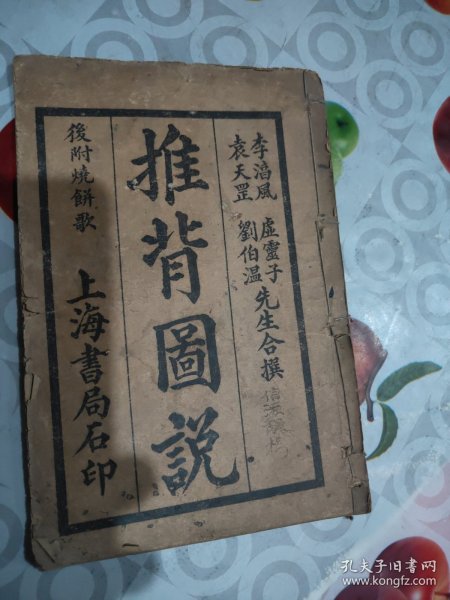 李淳風 虛靈子
袁天罡 劉伯温 先生合撰
推背圖説
後附燒餅歌
上海書局石印
孔夫子旧书网
www.kongfz.com